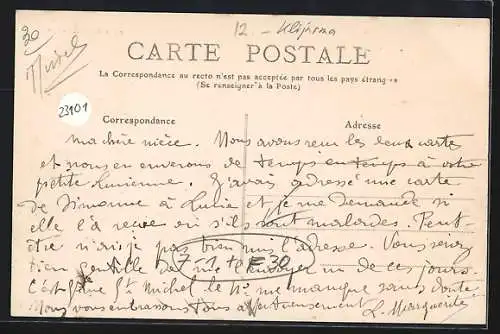 20
12 - Klijnma
CARTE POSTALE
La Correspondance au recto n'est pas acceptée par tous les pays étrangers
(Se renseigner à la Poste)
23101
Correspondance
Adresse
ma chère nièce. Nous avons reçu les deux cartes
et nous en envoyons de temps en temps à votre
petite Lucienne. J'avais adressé une carte
de Simonne à Lucie et je me demande si
elle l'a reçue ou s'ils sont malades. Peut-
être n'ai-je pas bien mis l'adresse. Vous serez
bien gentille de me l'envoyer un de ces jours.
7-1
30
St Michel le me manque sans doute
Nous vous embrassons tous affectueusement
L. Marguerite